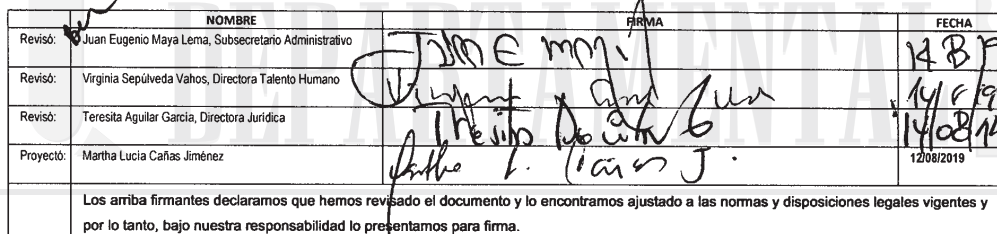 DEPARTAMENTAL
NOMBRE FIRMA FECHA
Revisó: Juan Eugenio Maya Lema, Subsecretario Administrativo
Revisó: Virginia Sepúlveda Vahos, Directora Talento Humano
Revisó: Teresita Aguilar García, Directora Jurídica 14/08/19
Proyectó: Martha Lucia Cañas Jiménez Martha L. Cañas J. 12/08/2019
Los arriba firmantes declaramos que hemos revisado el documento y lo encontramos ajustado a las normas y disposiciones legales vigentes y
por lo tanto, bajo nuestra responsabilidad lo presentamos para firma.